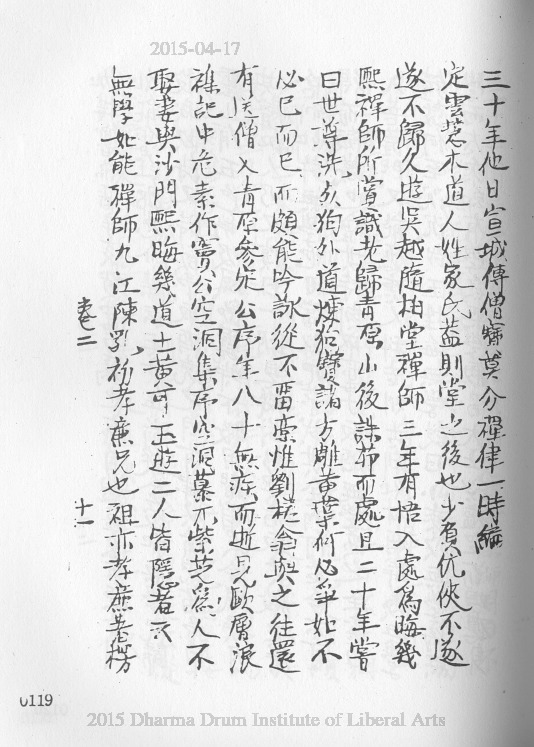 2015-04-17
三十年他日宣城傳僧寶莫分禪律一時編
定雲菴木道人姓家氏蓋則堂之後也少負伉俠不遂
遂不歸久遊吳越隨柏堂禪師三年有悟入處為晦幾
熙禪師所賞識老歸青原山後誅茆而處且二十年嘗
曰世尊洗 狗外道煉 諸方離黃葉何必爭如不
必已而已而頗能吟詠從不留橐惟劉 翁與之往還
有送僧入青原參定公序年八十無疾而逝見歐層浪
雜記中危素作 公空洞集序空洞慕元紫芝為人不
娶妻與沙門熙晦幾道士黃可玉遊二人皆隱者云
無學如能禪師九江陳 初孝廉兄也祖亦孝廉耆榜
卷二
十一
0119
2015 Dharma Drum Institute of Liberal Arts